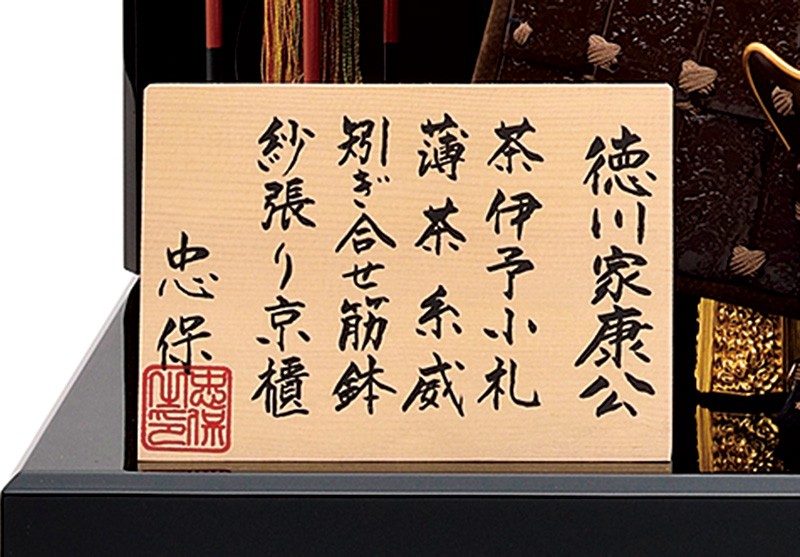 徳川家康公
茶伊予小札
薄茶糸威
矧ぎ合せ筋鉢
紗張り京櫃
忠保
忠保之印